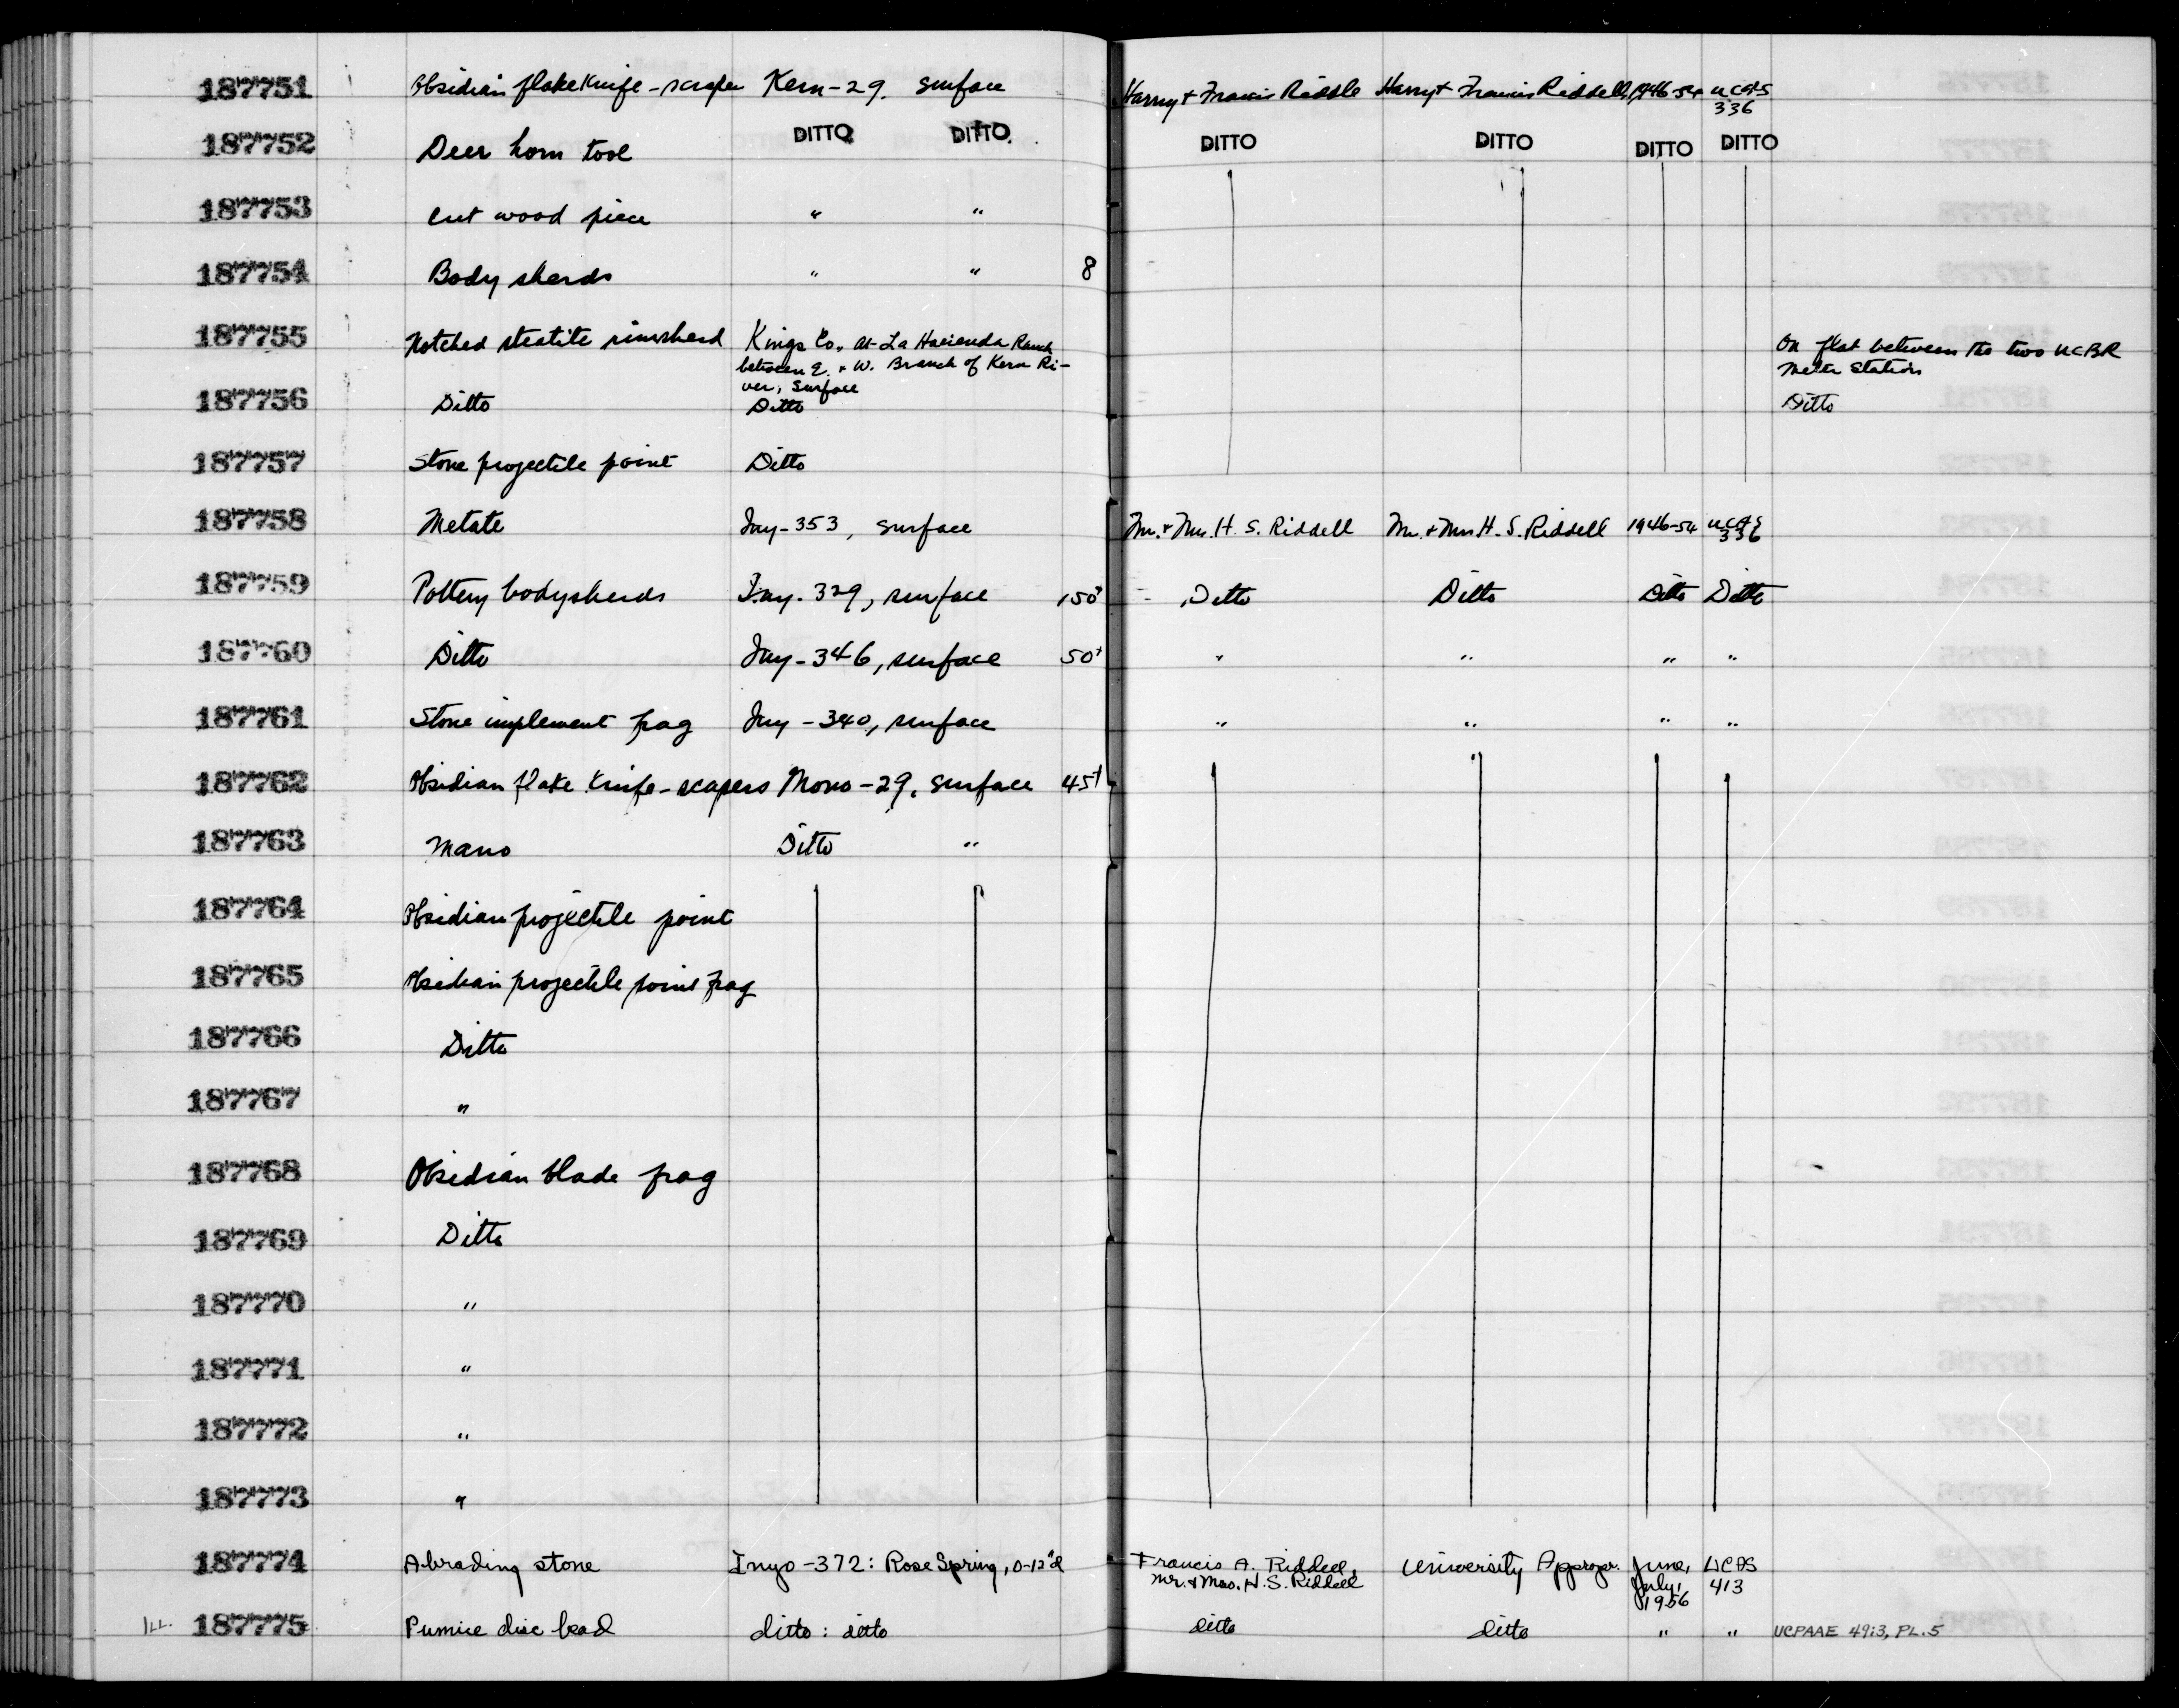 187751 Obsidian flake knife-scraper Kern-29. surface Harry + Francis Riddle Harry + Francis Riddell 1946-54 UCAS 336
187752 Deer horn tool DITTO DITTO DITTO DITTO DITTO DITTO
187753 Cut wood piece " "
187754 Body sherds " " 8
187755 Notched steatite rimsherd Kings Co., at La Hacienda Ranch On flat between the two UCBR
between E. + W. Branch of Kern Ri- Meter Stations
ver, surface
187756 Ditto Ditto Ditto
187757 Stone projectile point Ditto
187758 Metate Iny-353, surface Mr. + Mrs. H. S. Riddell Mr. + Mrs H. S. Riddell 1946-54 UCAS 336
187759 Pottery bodysherds Iny. 329, surface 150+ Ditto Ditto Ditto Ditto
187760 Ditto Iny-346, surface 50+ " " " "
187761 Stone implement frag Iny-340, surface " " " "
187762 Obsidian flake knife-scapers Mono-29, surface 45+ "
187763 Mano Ditto "
187764 Obsidian projectile point
187765 Obsidian projectile point frag
187766 Ditto
187767 "
187768 Obsidian blade frag
187769 Ditto
187770 "
187771 "
187772 "
187773 "
187774 Abrading stone Inyo-372: Rose Spring, 0-12"d Francis A. Riddell, University Approp. June, UCAS
Mr. & Mrs. H. S. Riddell July, 413
1956
ILL. 187775 Pumice disc bead ditto : ditto ditto ditto " " UCPAAE 49:3, PL. 5